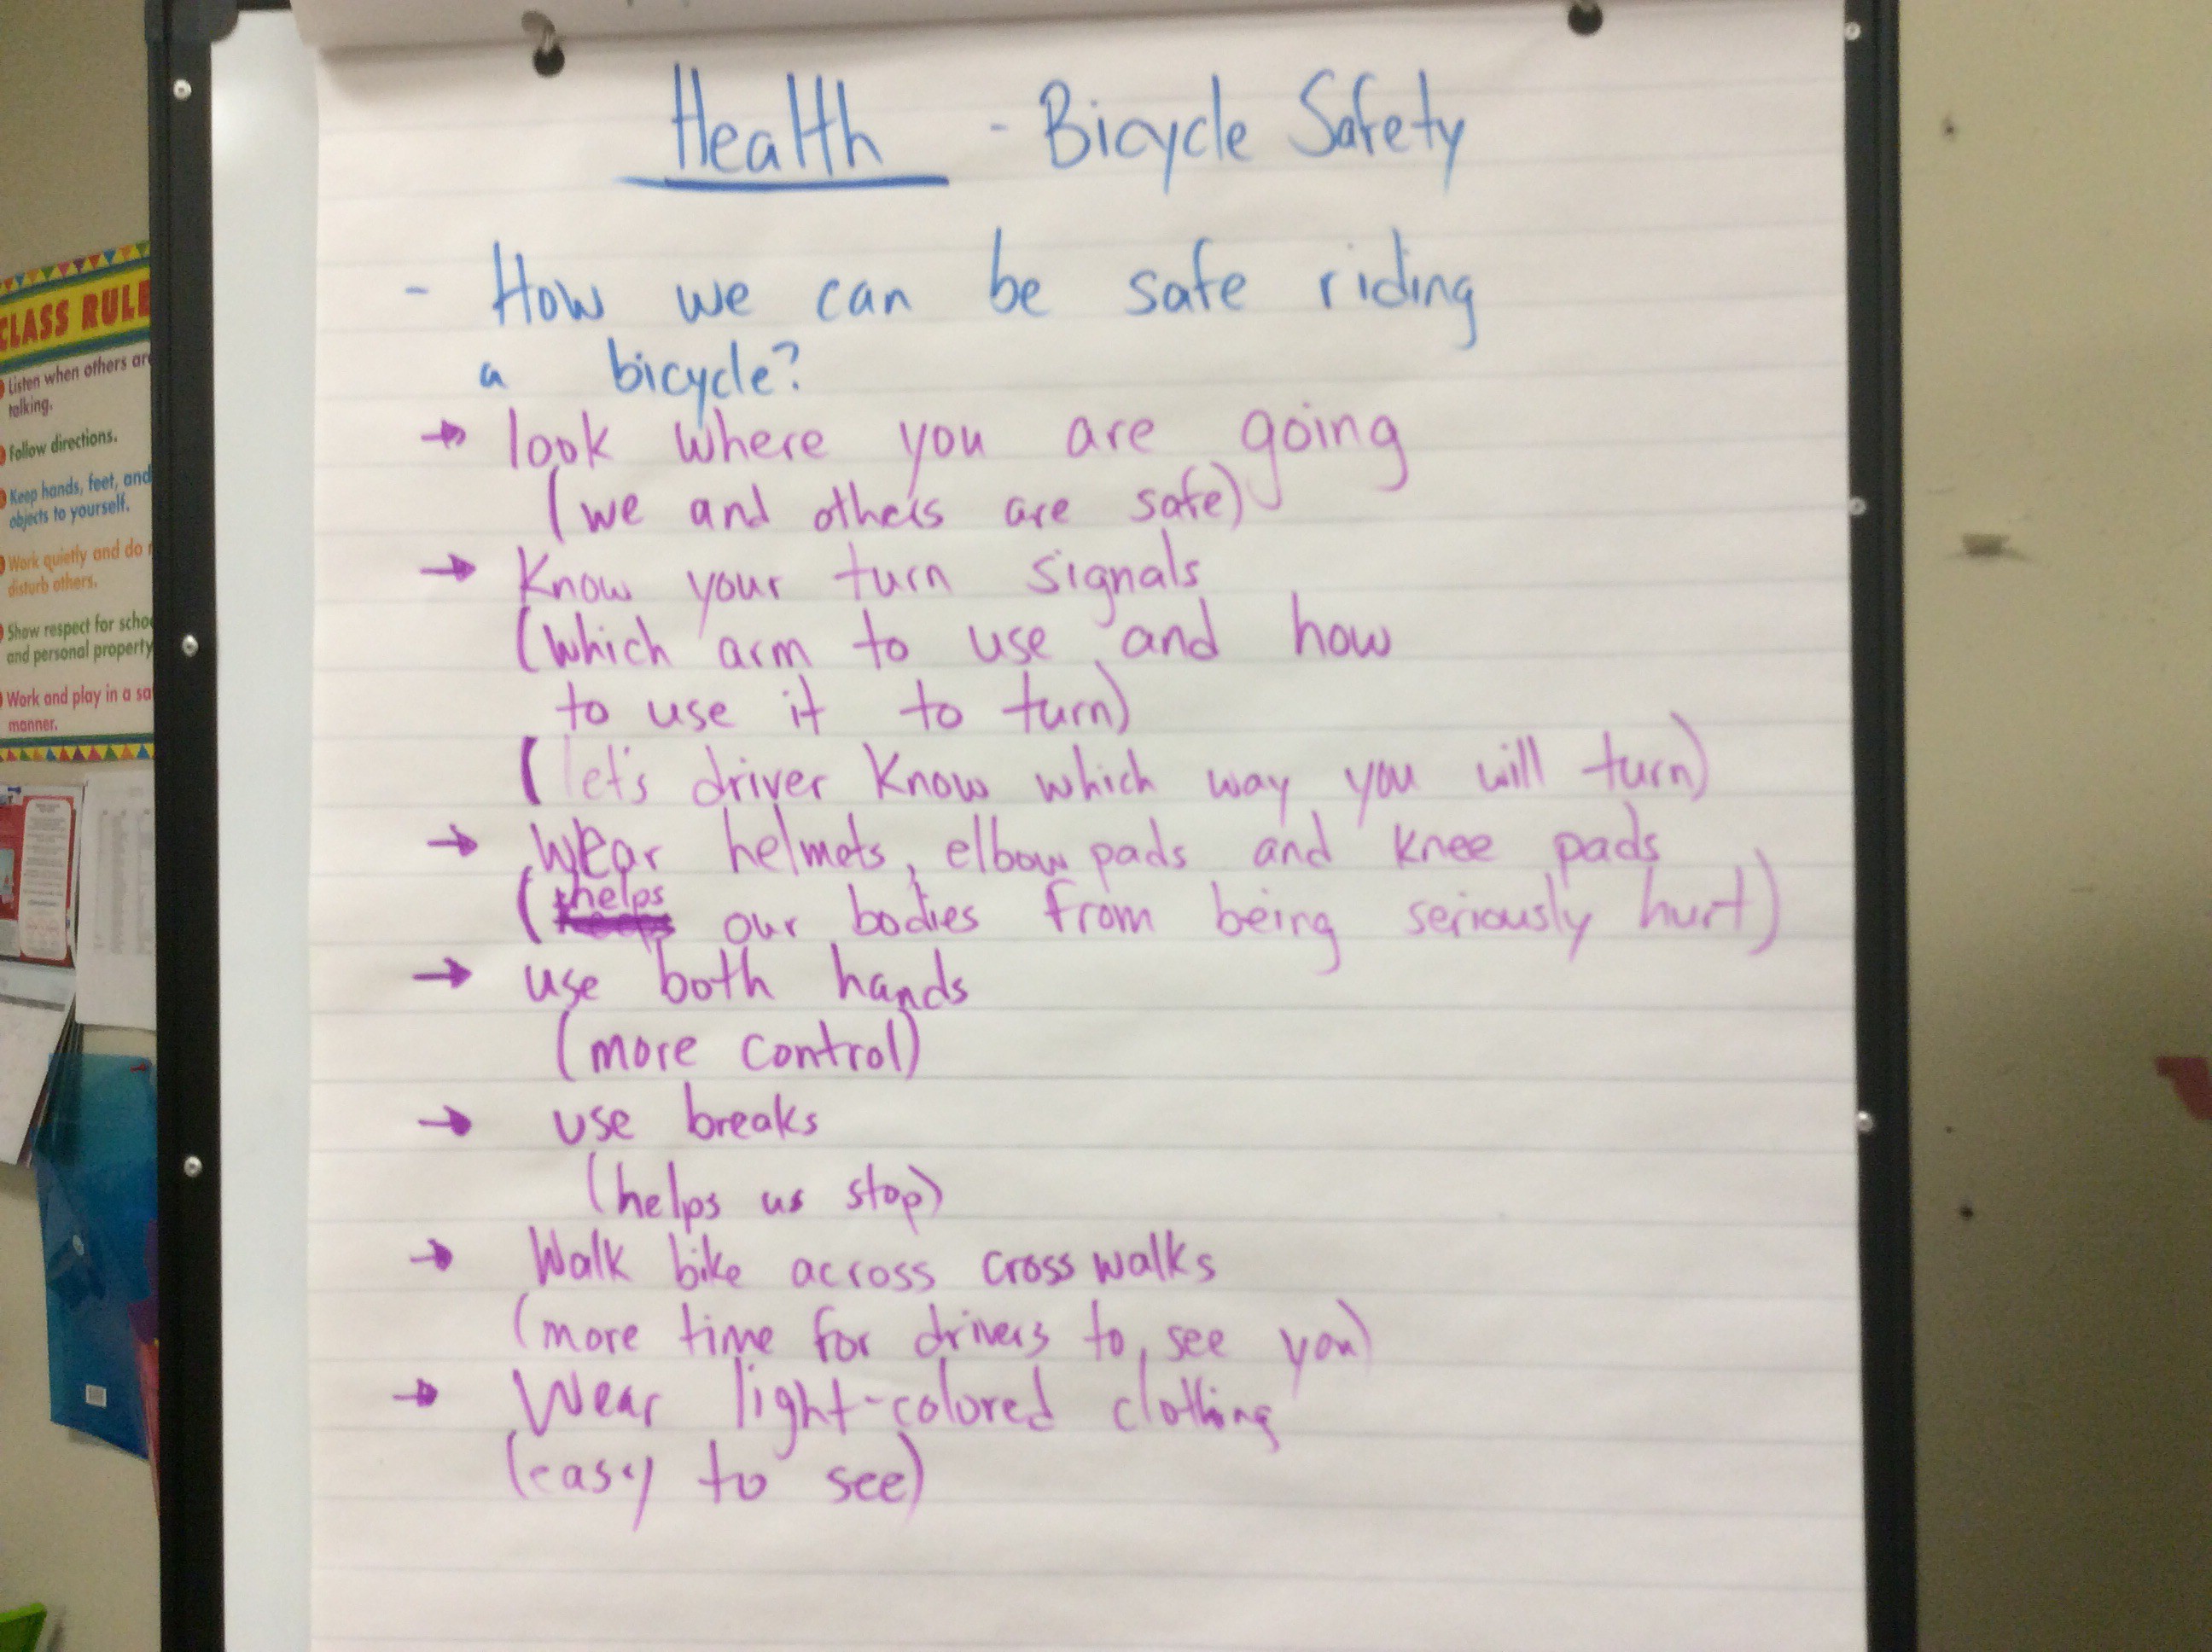 Health - Bicycle Safety
- How we can be safe riding
a bicycle?
→ look where you are going
(we and others are safe)
→ Know your turn signals
(which arm to use and how
to use it to turn)
(let's driver know which way you will turn)
→ Wear helmets, elbow pads and knee pads
(helps our bodies from being seriously hurt)
→ use both hands
(more control)
→ use breaks
(helps us stop)
→ Walk bike across cross walks
(more time for drivers to see you)
→ Wear light-colored clothing
(easy to see)
CLASS RULE
Listen when others are
talking.
Follow directions.
Keep hands, feet, and
objects to yourself.
Work quietly and do
disturb others.
Show respect for schoo
and personal property
Work and play in a sa
manner.